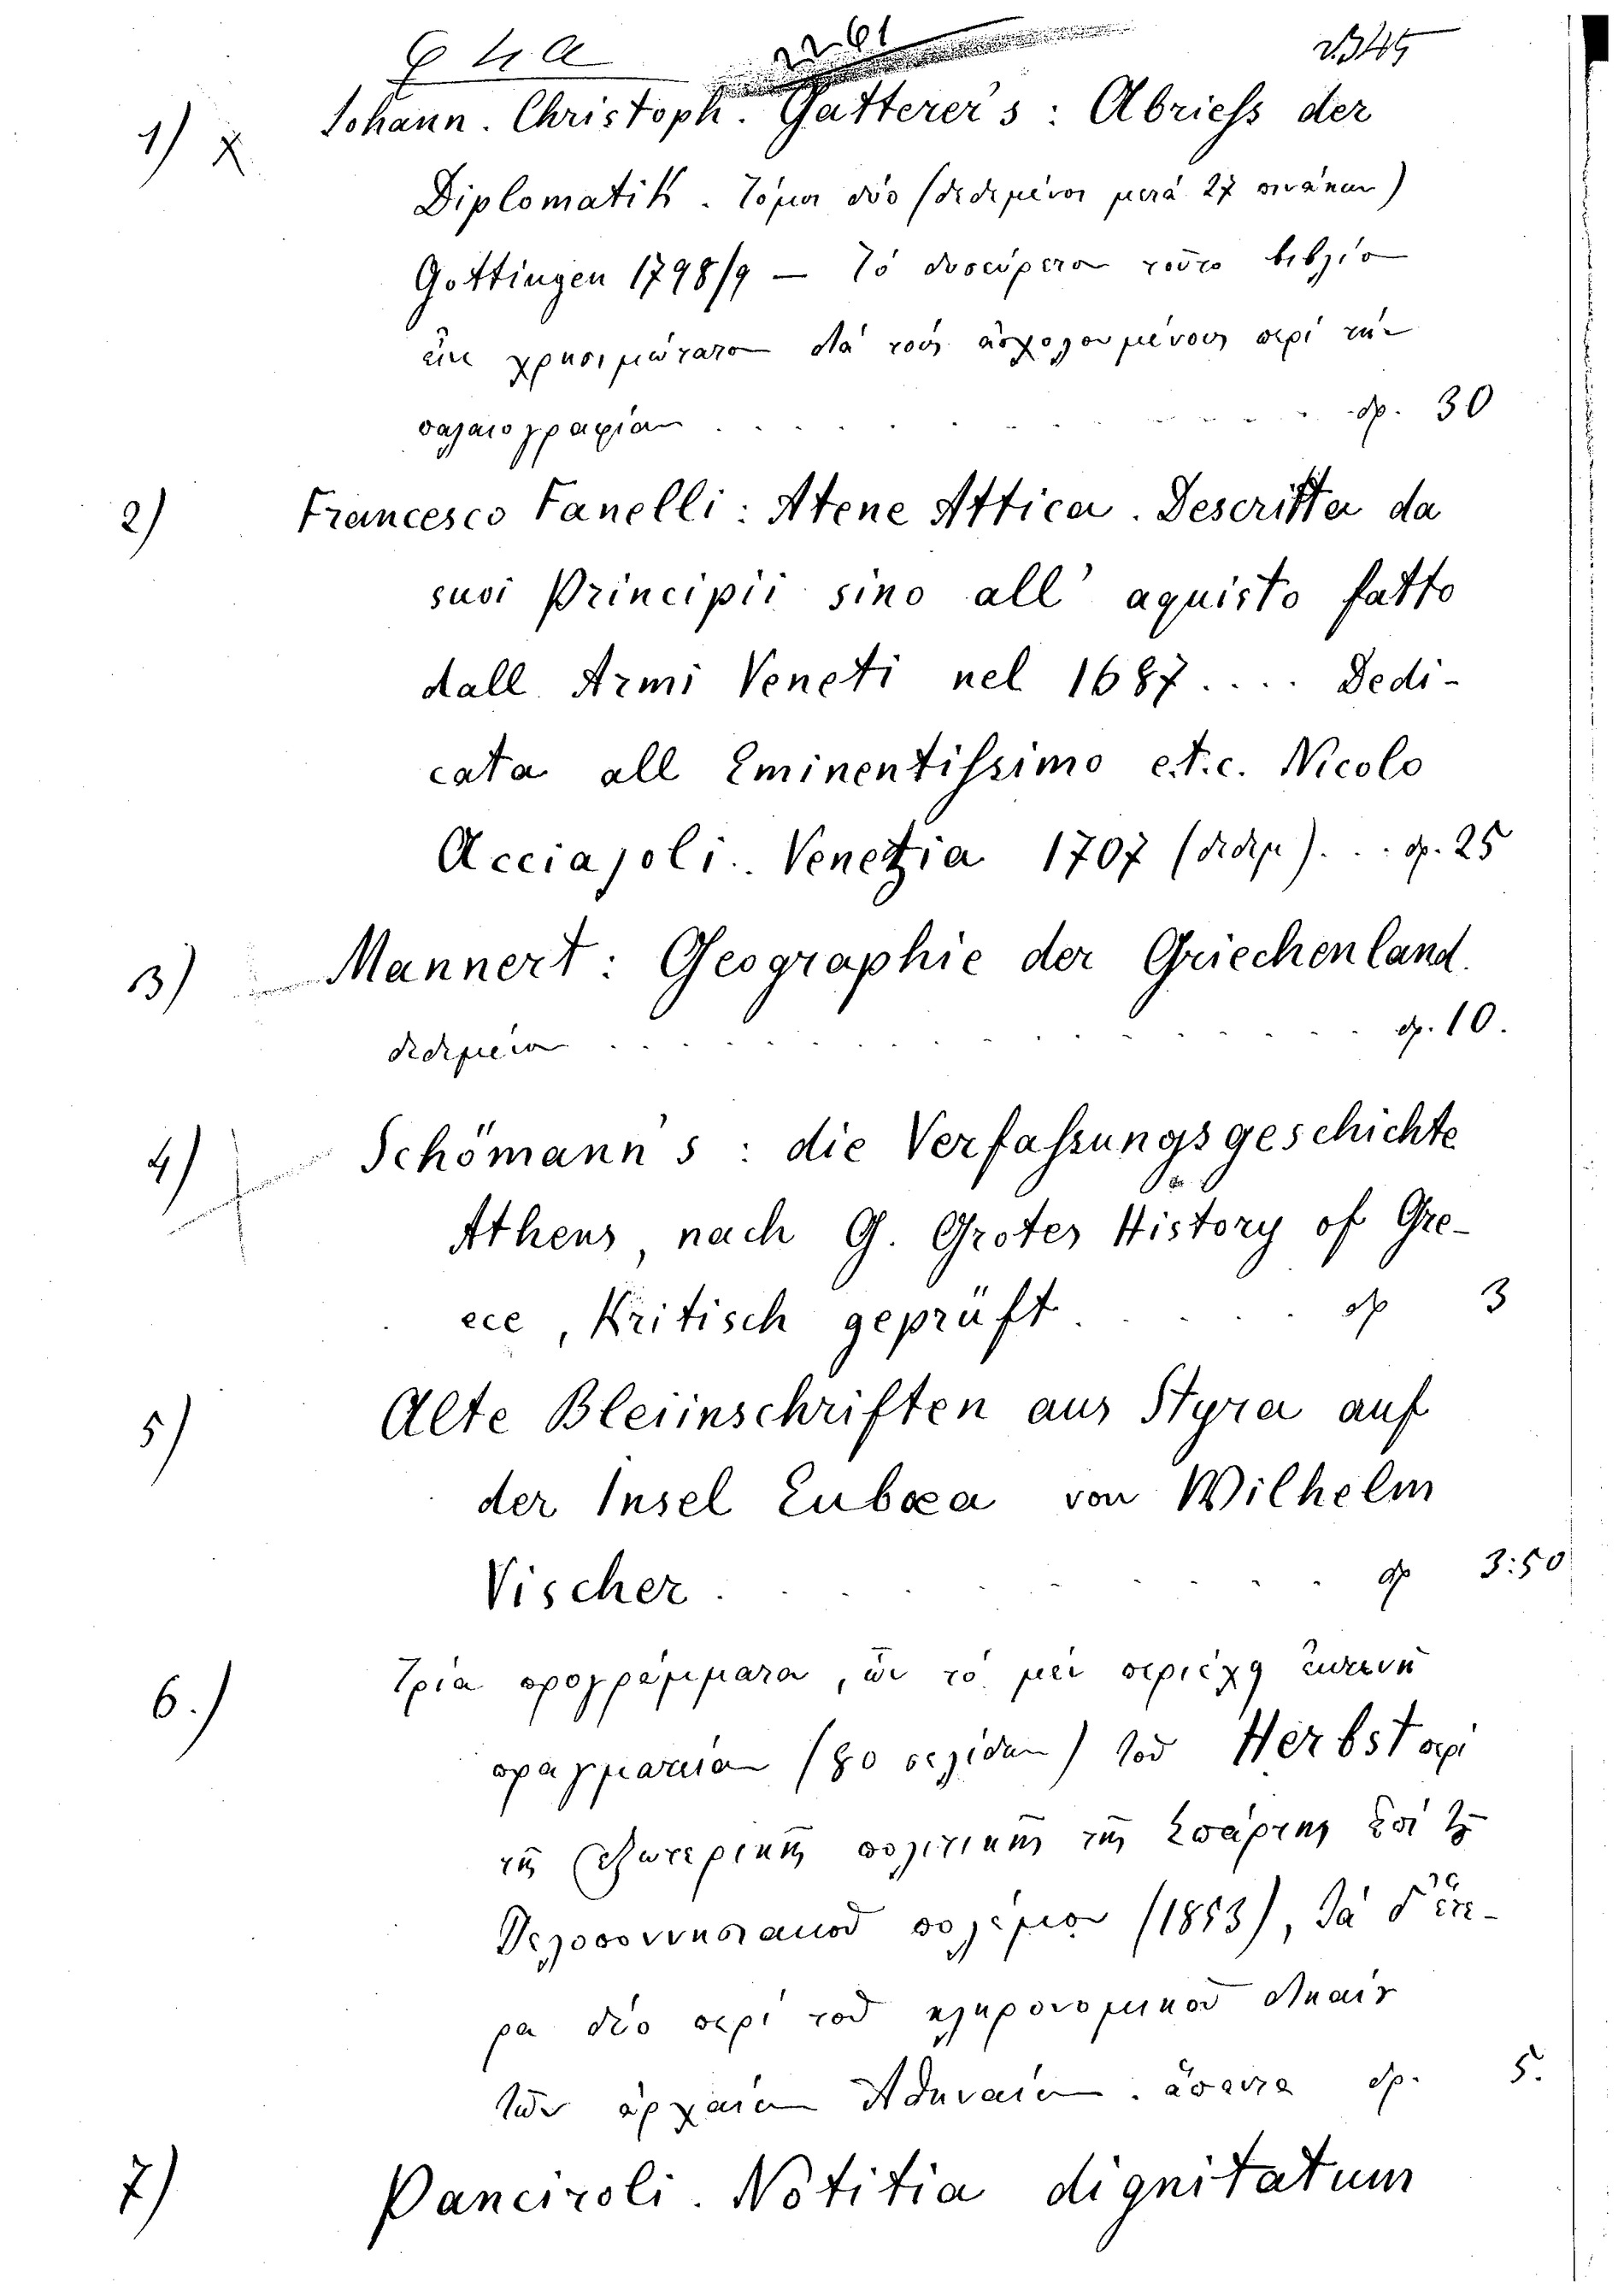 2261
1) χ Iohann. Christoph. Gatterer's: Abriess der
Diplomatik. Τόμοι δύο (δεδεμένοι μετά 27 πινάκων)
Gottingen 1798/9 — Τό δυσεύρετον τοῦτο βιβλίον
εἶνε χρησιμώτατον διά τούς ἀσχολουμένους περί τήν
παλαιογραφίαν . . . . . . . δρ. 30
2) Francesco Fanelli: Atene Attica. Descritta da
suoi Principii sino all' aquisto fatto
dall Armi Veneti nel 1687 . . . . Dedi-
cata all Eminentissimo e.t.c. Nicolo
Acciajoli. Venezia 1707 (δεδεμ) . . . δρ. 25
3) Mannert: Geographie der Griechenland.
δεδεμένον . . . . . . . δρ. 10.
4) Schömann's: die Verfassungsgeschichte
Athens, nach G. Grotes History of Gre-
ece, Kritisch geprüft . . . . . δρ 3
5) Alte Bleiinschriften aus Styra auf
der Insel Eubœa von Wilhelm
Vischer . . . . . . . δρ 3:50
6.) Τρία προγράμματα, ὧν τό μέν περιέχη
πραγματείαν (80 σελίδων) τοῦ Herbst περί
τῆς ἐξωτερικῆς πολιτικῆς τῆς Σπάρτης ἐπί τοῦ
Πελοποννησιακοῦ πολέμου (1853), Τά δ' ἕτε-
ρα δύο περί τοῦ κληρονομικοῦ δικαίου
τῶν ἀρχαίων Ἀθηναίων. ἅπαντα δρ. 5.
7) Panciroli. Notitia dignitatum